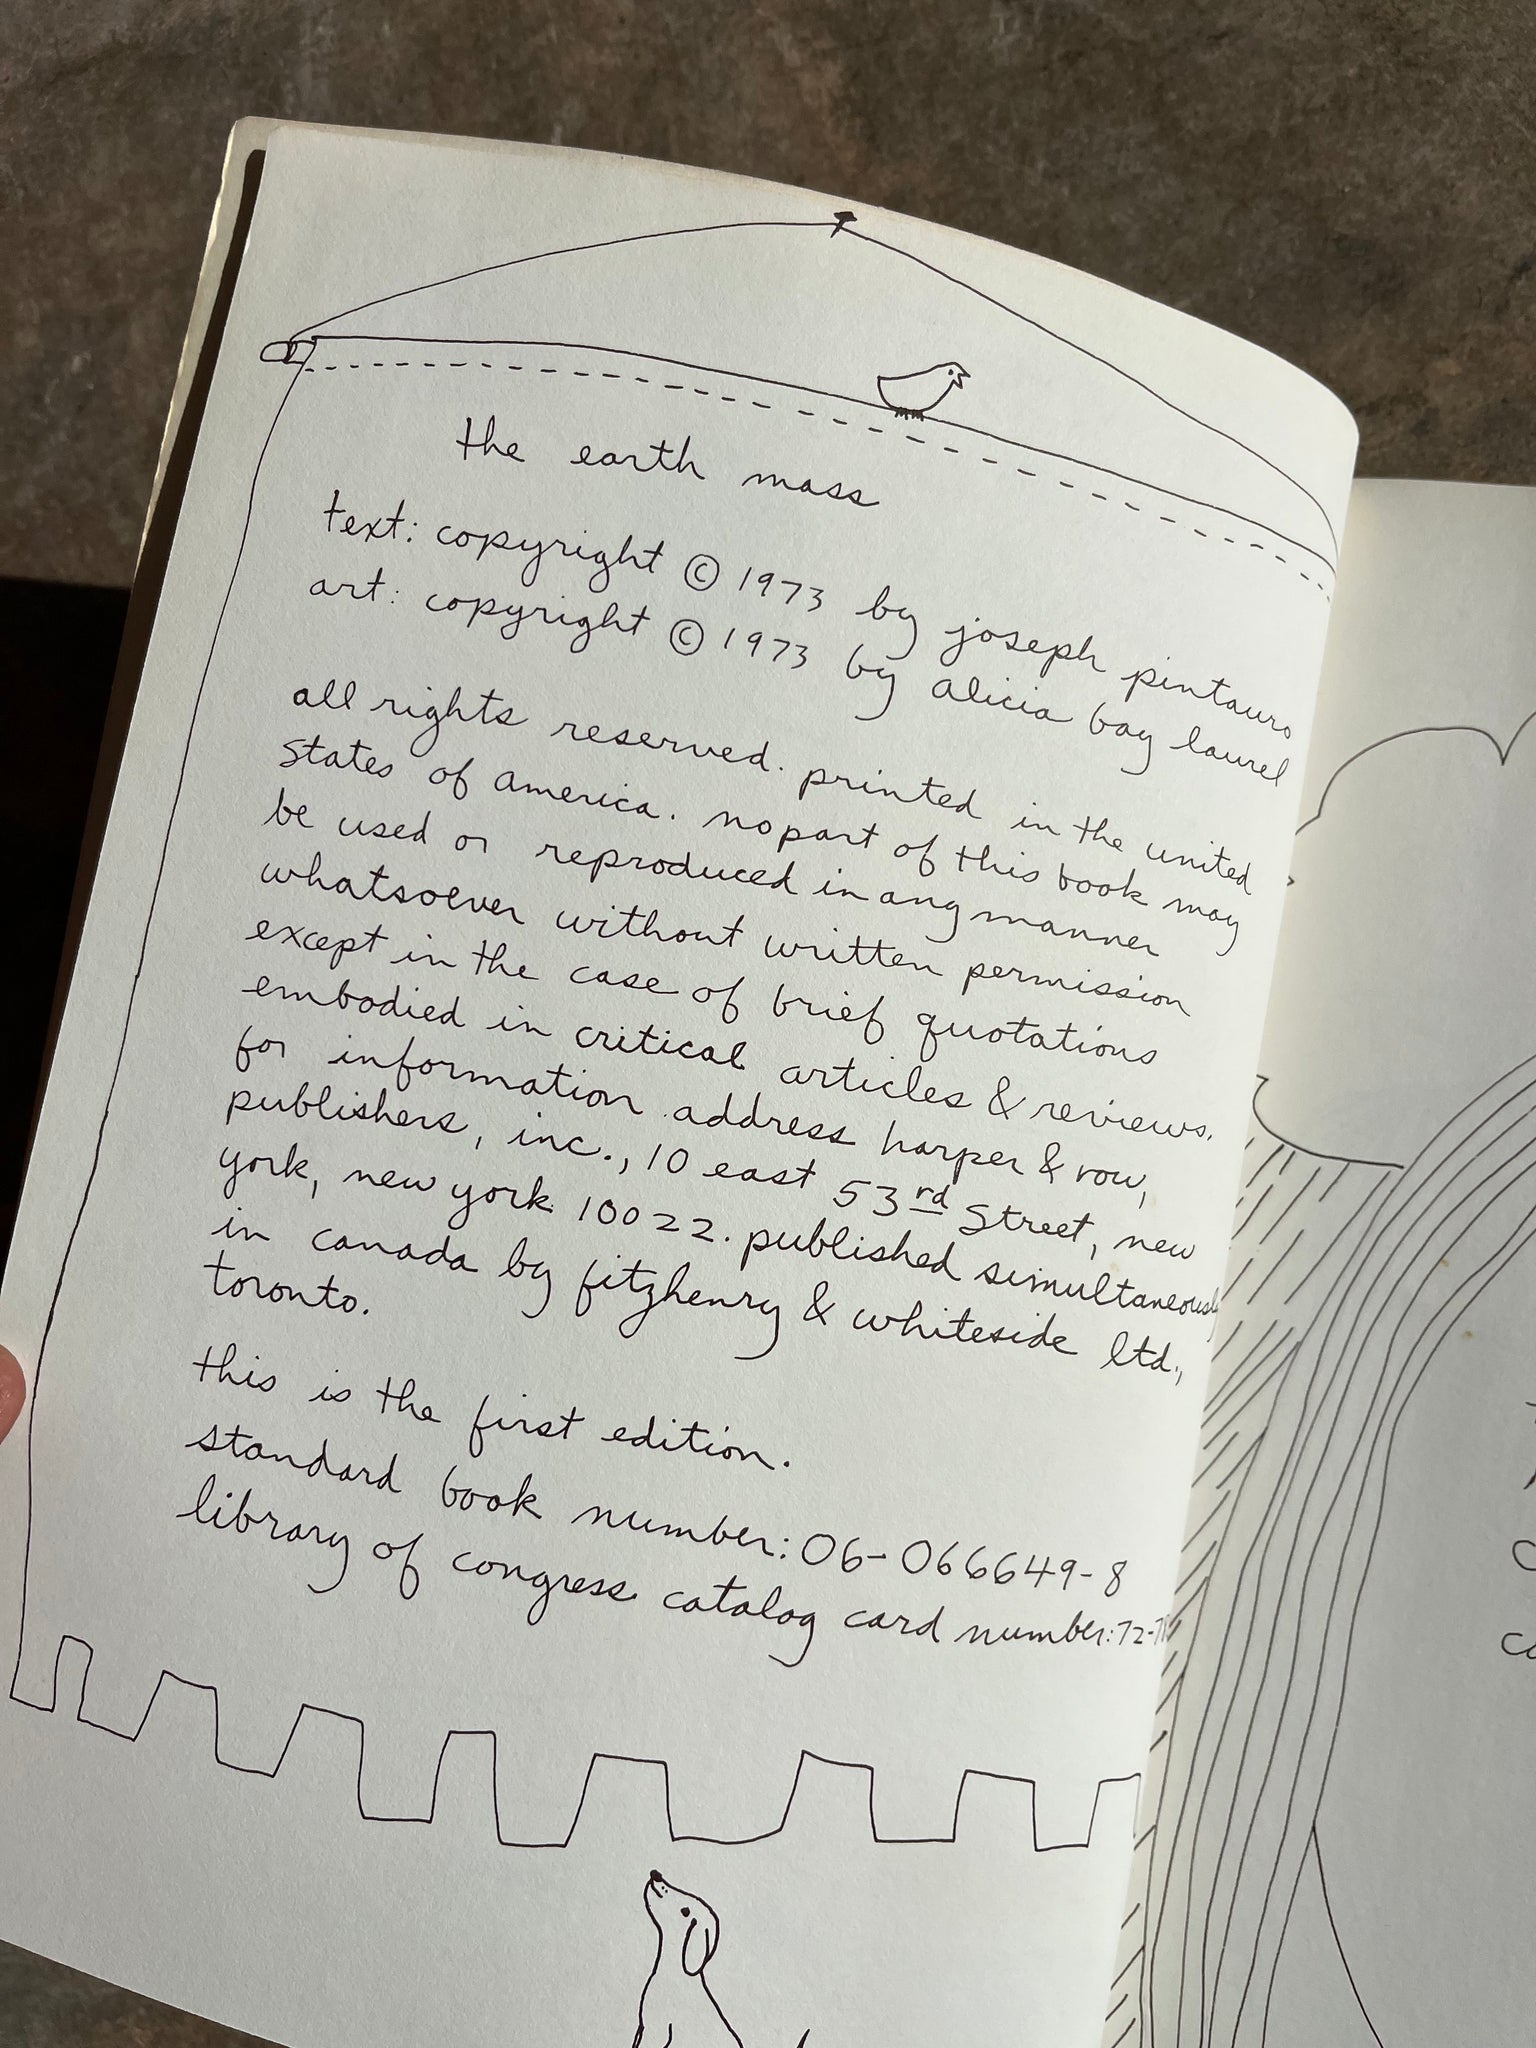 the earth mass
text: copyright © 1973 by joseph pintauro
art: copyright © 1973 by alicia bay laurel
all rights reserved. printed in the united
states of america. no part of this book may
be used or reproduced in any manner
whatsoever without written permission
except in the case of brief quotations
embodied in critical articles & reviews.
for information address harper & row,
publishers, inc., 10 east 53rd street, new
york, new york 10022. published simultaneously
in canada by fitzhenry & whiteside ltd.,
toronto.
this is the first edition.
standard book number: 06-066649-8
library of congress catalog card number: 72-